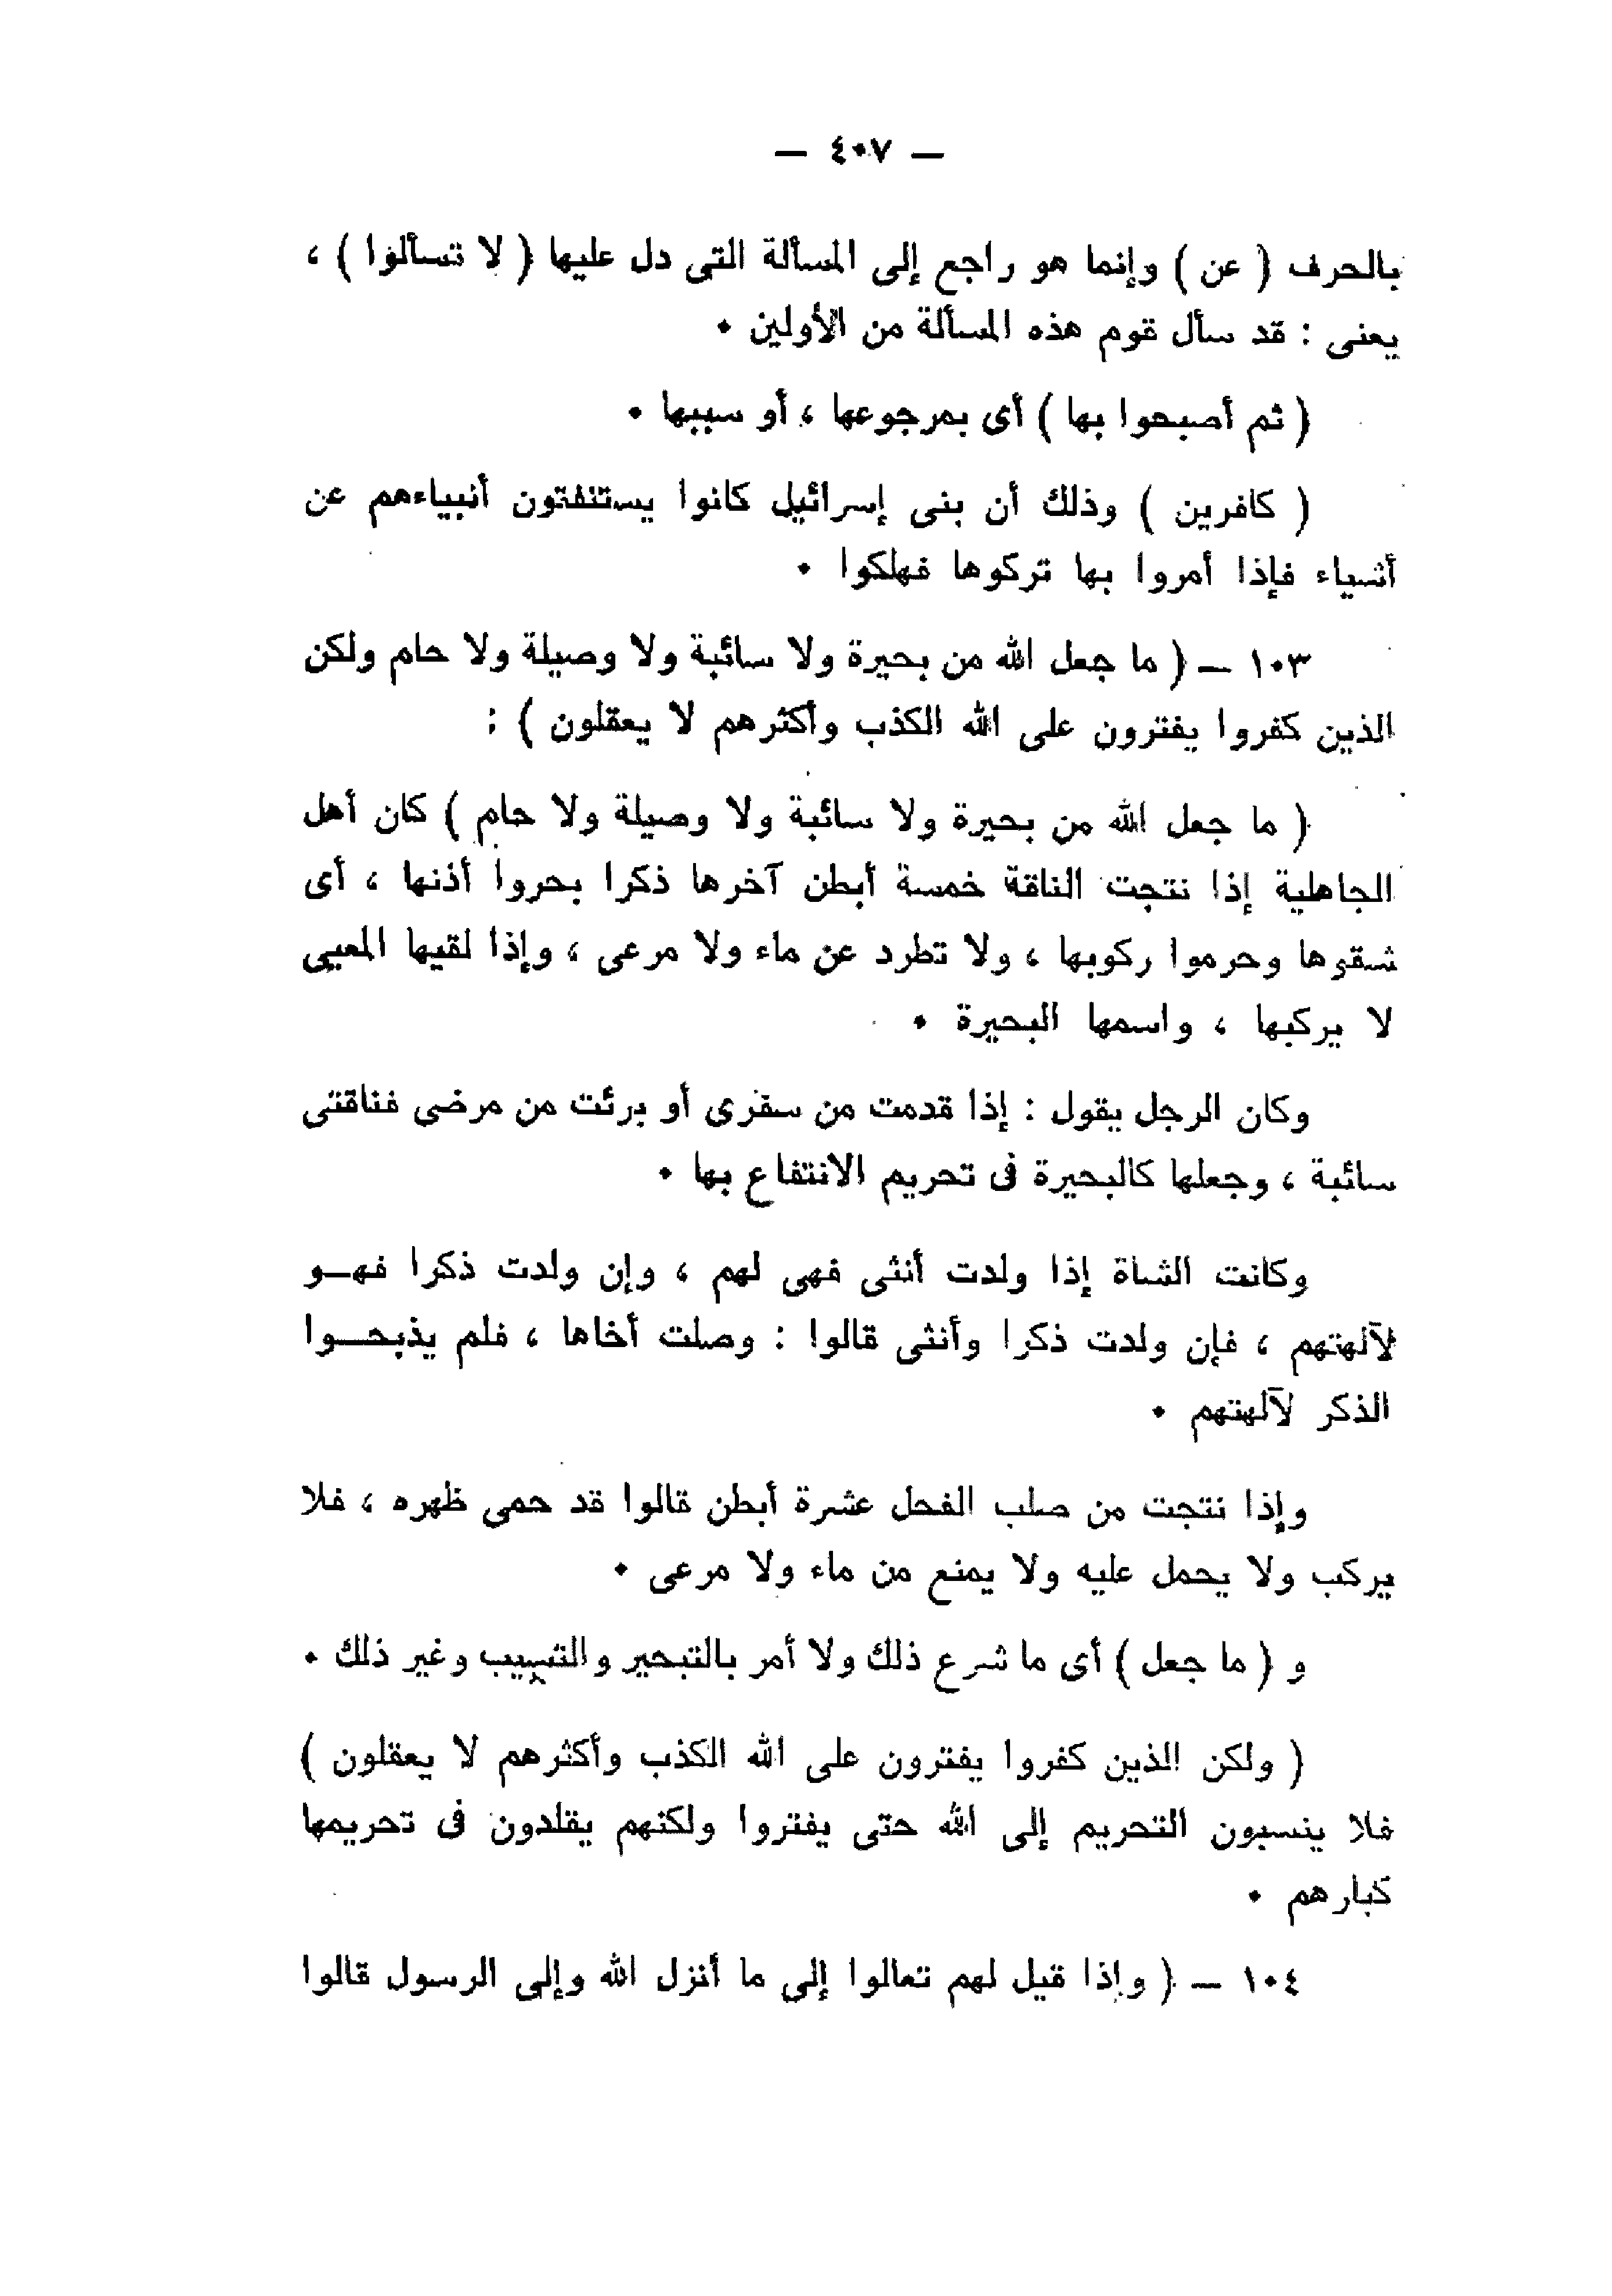 — ٤٠٧ —
بالحرف ( عن ) وإنما هو راجع إلى المسألة التى دل عليها ( لا تسألوا ) ،
يعنى : قد سأل قوم هذه المسألة من الأولين .
( ثم أصبحوا بها ) أى بمرجوعها ، أو سببها .
( كافرين ) وذلك أن بنى إسرائيل كانوا يستفتون أنبياءهم عن
أشياء فإذا أمروا بها تركوها فهلكوا .
١٠٣ — ( ما جعل الله من بحيرة ولا سائبة ولا وصيلة ولا حام ولكن
الذين كفروا يفترون على الله الكذب وأكثرهم لا يعقلون ) :
( ما جعل الله من بحيرة ولا سائبة ولا وصيلة ولا حام ) كان أهل
الجاهلية إذا نتجت الناقة خمسة أبطن آخرها ذكرا بحروا أذنها ، أى
شقوها وحرموا ركوبها ، ولا تطرد عن ماء ولا مرعى ، وإذا لقيها المعيى
لا يركبها ، واسمها البحيرة .
وكان الرجل يقول : إذا قدمت من سفرى أو برئت من مرضى فناقتى
سائبة ، وجعلها كالبحيرة فى تحريم الانتفاع بها .
وكانت الشاة إذا ولدت أنثى فهى لهم ، وإن ولدت ذكرا فهـو
لآلهتهم ، فإن ولدت ذكرا وأنثى قالوا : وصلت أخاها ، فلم يذبحـوا
الذكر لآلهتهم .
وإذا نتجت من صلب الفحل عشرة أبطن قالوا قد حمى ظهره ، فلا
يركب ولا يحمل عليه ولا يمنع من ماء ولا مرعى .
و ( ما جعل ) أى ما شرع ذلك ولا أمر بالتبحير والتسييب وغير ذلك .
( ولكن الذين كفروا يفترون على الله الكذب وأكثرهم لا يعقلون )
فلا ينسبون التحريم إلى الله حتى يفتروا ولكنهم يقلدون فى تحريمها
كبارهم .
١٠٤ — ( وإذا قيل لهم تعالوا إلى ما أنزل الله وإلى الرسول قالوا